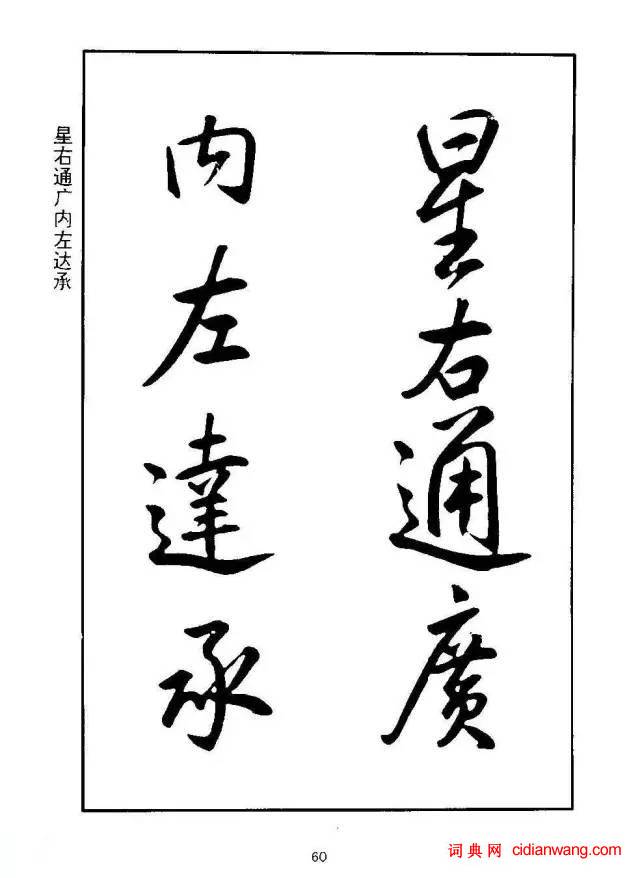 星右通廣
内左達承
星右通广内左达承
60
词典网 cidianwang.com